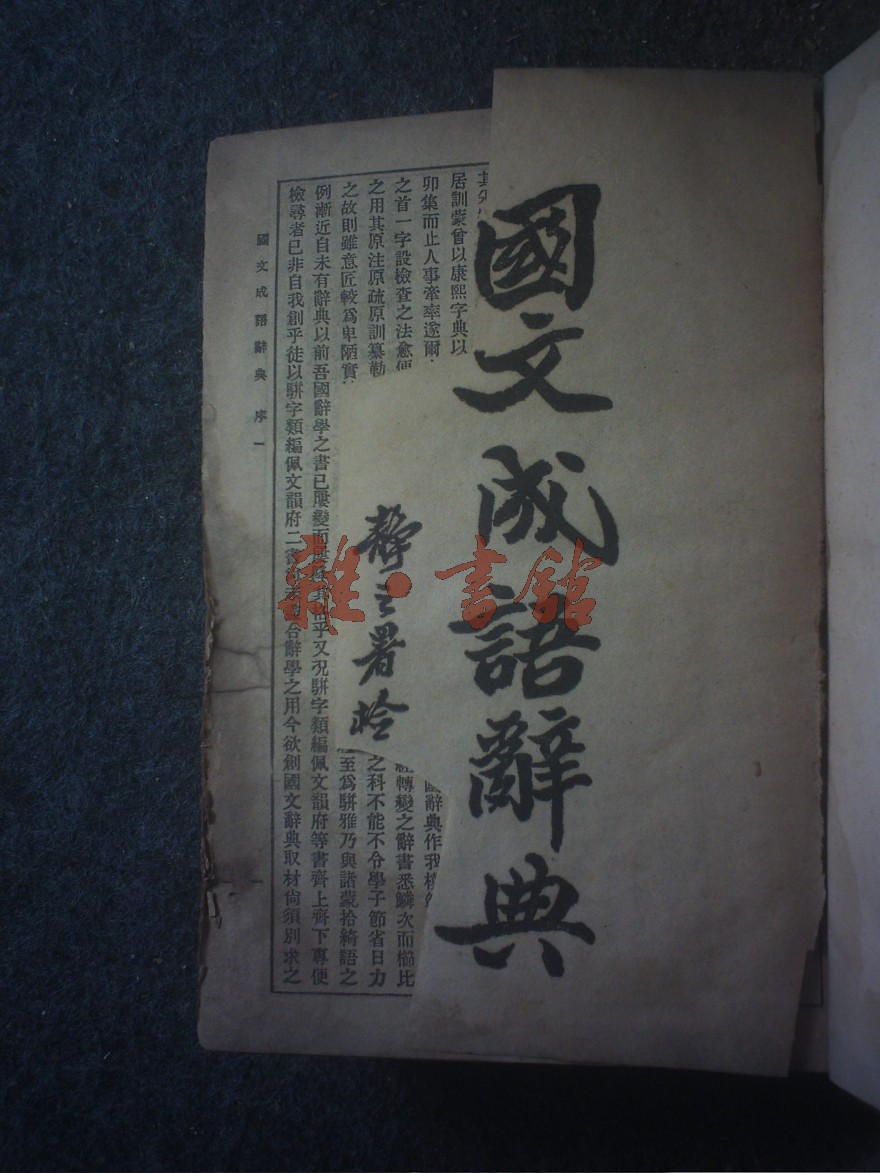 國文成語辭典
靜之署檢
雜·書館
居訓蒙曾以康熙字典以
卯集而止人事牽率遂爾
之首一字設檢查之法愈便
之用其原注原疏原訓纂勒
之故則雖意匠較爲卑陋實
例漸近自未有辭典以前吾國辭學之書已屢變而
乎又況駢字類編佩文韻府等書齊上齊下專便
檢尋者已非自我創乎徒以駢字類編佩文韻府二書
合辭學之用今欲創國文辭典取材尙須別求之
辭典作我
轉變之辭書悉鱗次而櫛比
之科不能不令學子節省日力
至爲駢雅乃與諸蒙拾綺語之
國文成語辭典 序 一